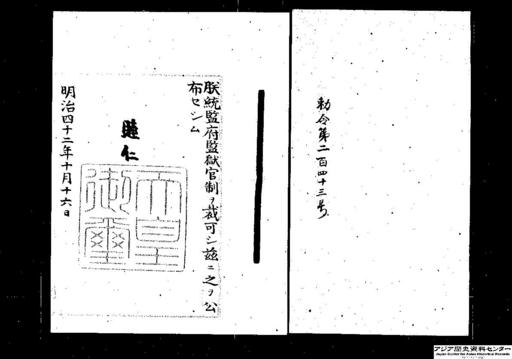 勅令第二百四十三号
朕統監府監獄官制ヲ裁可シ茲ニ之ヲ公
布セシム
睦仁
天皇
御璽
明治四十二年十月十六日
アジア歴史資料センター
Japan Center for Asian Historical Records